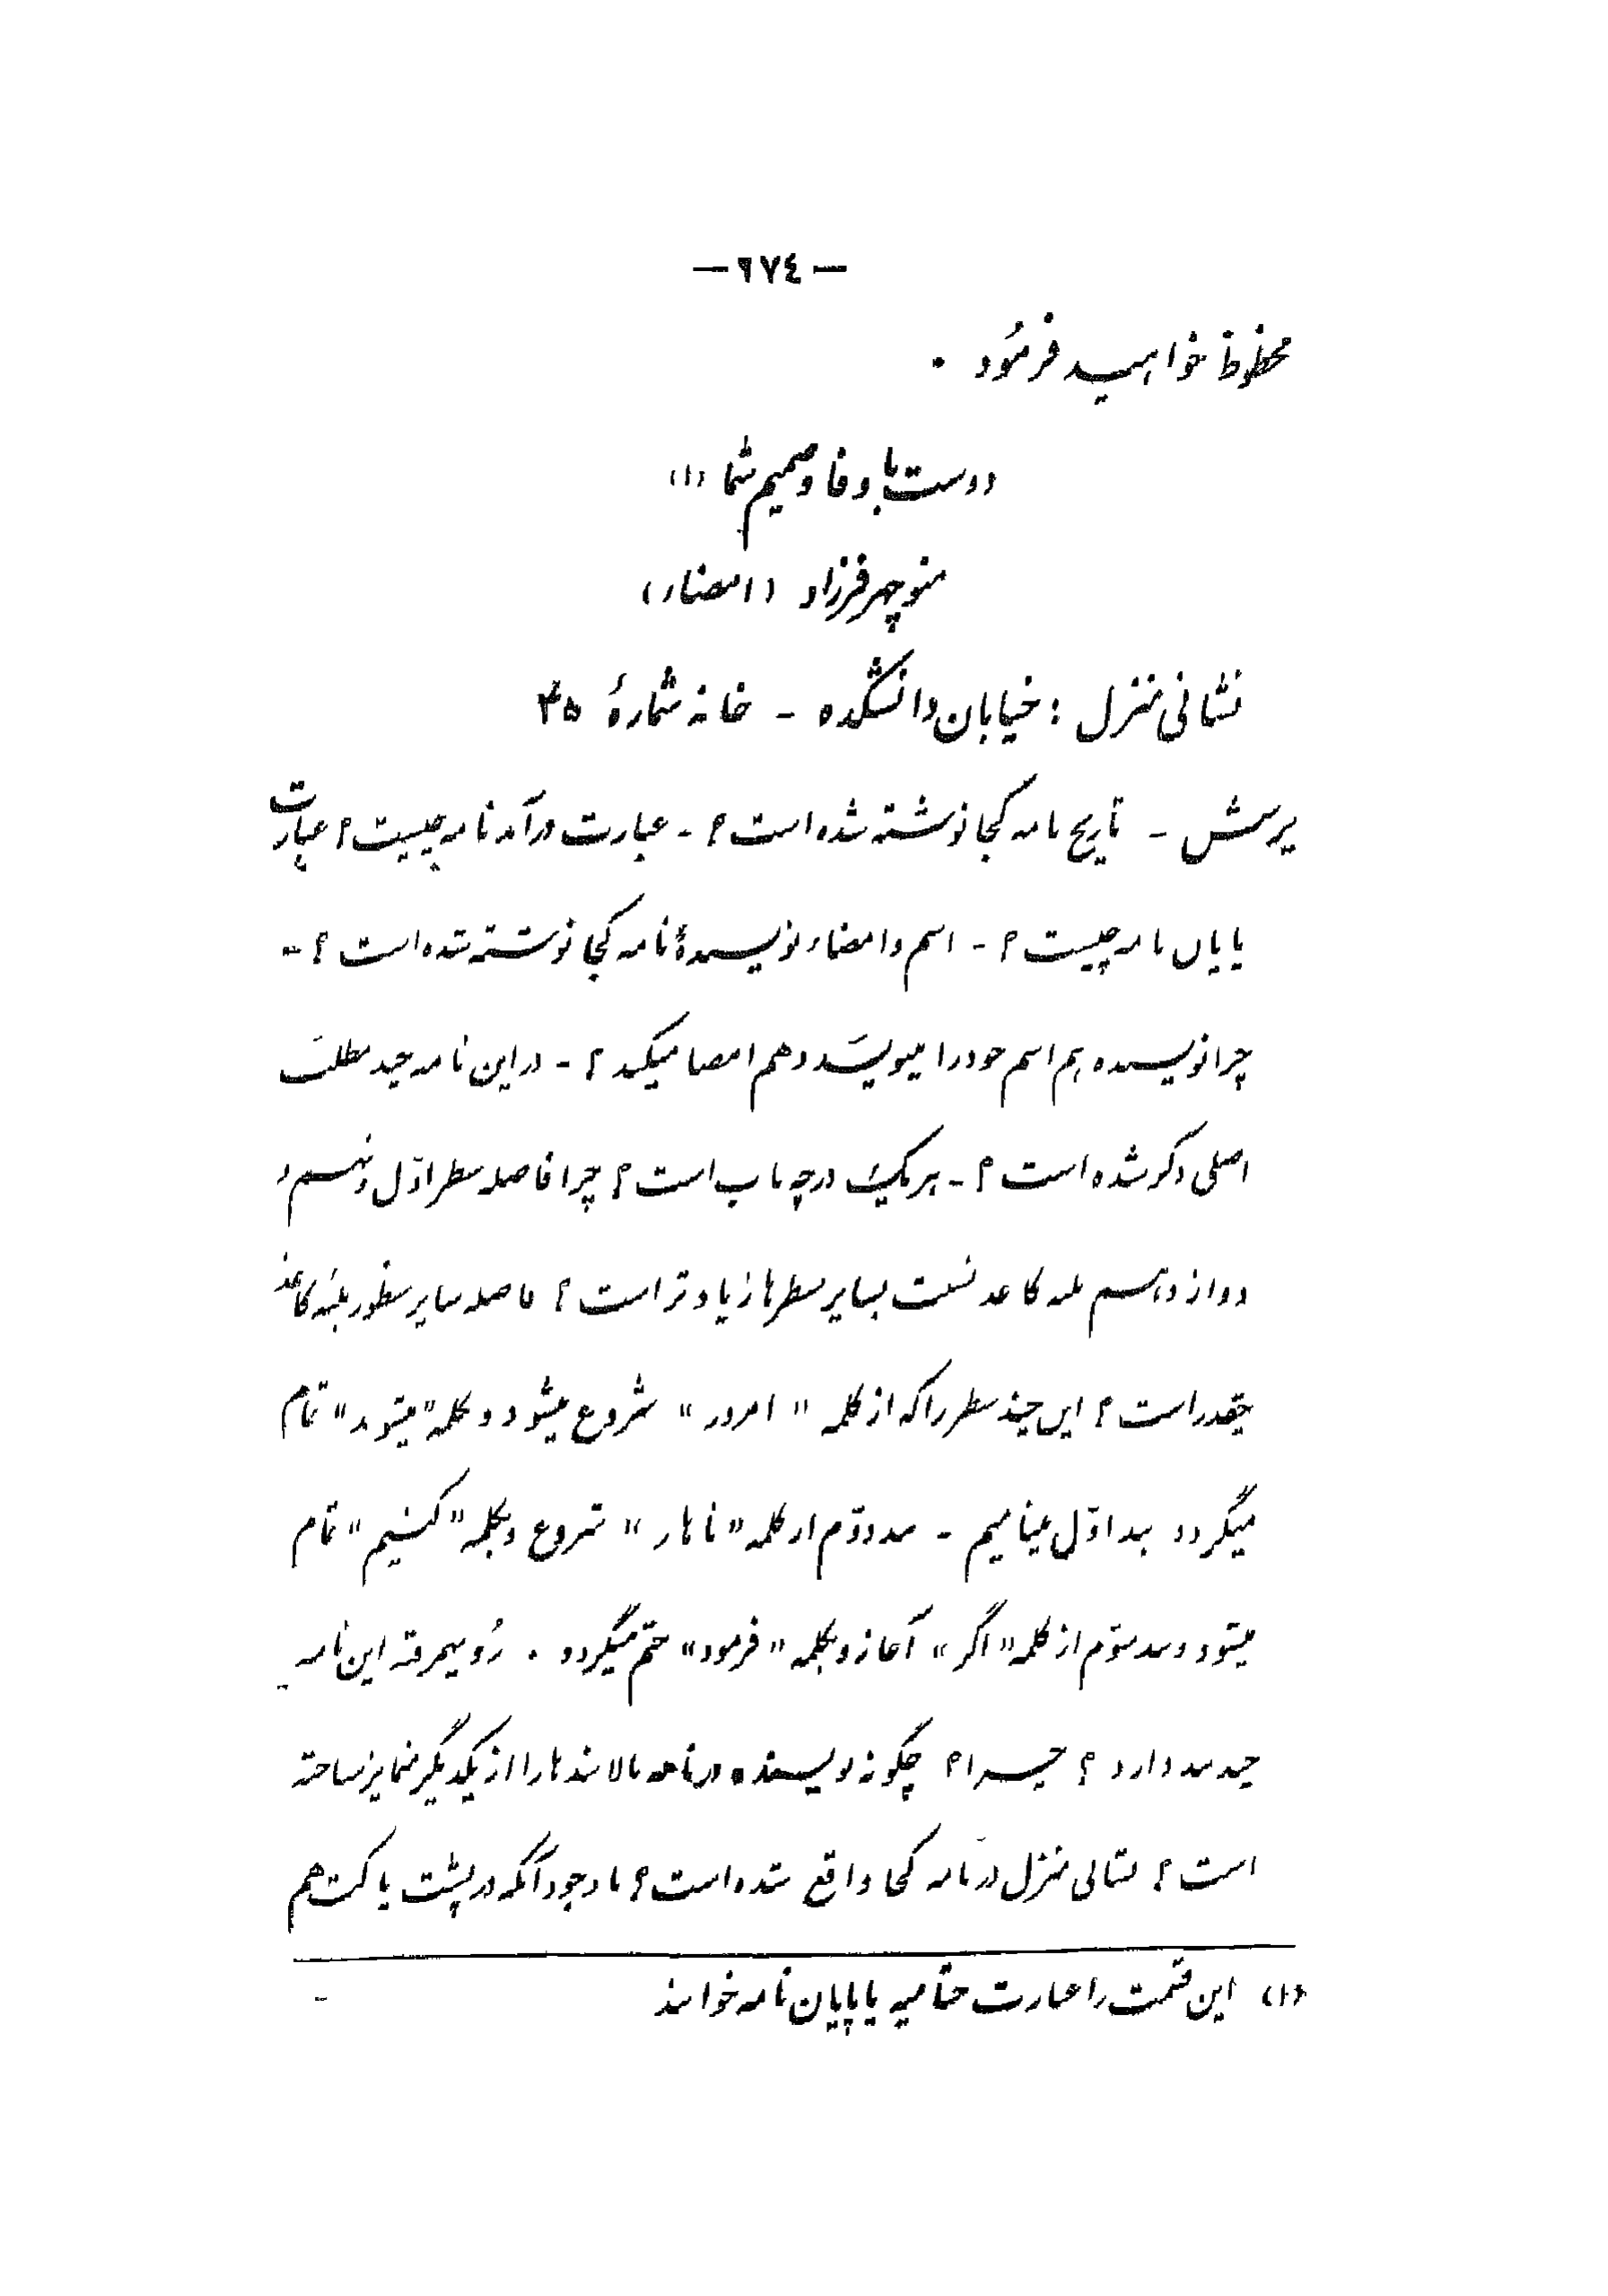 — ٦٧٤ —
محظوظ خواهید فرمود .
دوست با وفا و صمیم شما (۱)
منوچهر فرزاد (امضاء)
نشانی منزل : خیابان دانشکده - خانه شمارهٔ ۴۵
پرسش - تاریخ نامه کجا نوشته شده است ؟ - عبارت درآمد نامه چیست ؟ عبارت
پایان نامه چیست ؟ - اسم و امضاء نویسندهٔ نامه کجا نوشته شده است ؟ -
چرا نویسنده هم اسم خود را مینویسد و هم امضا میکند ؟ - در این نامه چند مطلب
اصلی ذکر شده است ؟ - هر یک در چه باب است ؟ چرا فاصله سطر اوّل و نهم و
دوازدهم بلبه کاغذ نسبت بسایر سطرها زیادتر است ؟ فاصله سایر سطور بلبه کاغذ
چقدر است ؟ این چند سطر را که از کلمه « امروز » شروع میشود و بکلمه « میشوند » تمام
میگردد بند اوّل مینامیم - بند دوّم از کلمه « ناهار » شروع و بکلمه « کنیم » تمام
میشود و بند سوّم از کلمه « اگر » آغاز و بکلمه « فرمود » ختم میگردد . رُویهمرفته این نامه
چند بند دارد ؟ چرا ؟ چگونه نویسنده در نامه بالا بندها را از یکدیگر متمایز ساخته
است ؟ نشانی منزل در نامه کجا واقع شده است ؟ با وجود آنکه در پشت پاکت هم
(۱) این قسمت را عبارت ختامیه یا پایان نامه خوانند